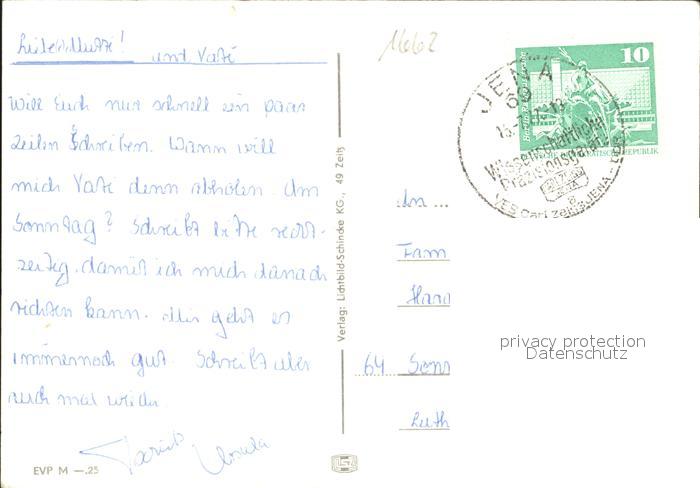 Liebe Mutti!
und Vati
Will Euch nur schnell ein paar
Zeilen schreiben. Wann will
mich Vati denn abholen. Am
Sonntag? Schreibt bitte recht-
zeitig, damit ich mich danach
richten kann. Mir geht es
immernoch gut. Schreibt aber
auch mal wieder.
Ursula
EVP M —.25
Verlag: Lichtbild-Schincke KG., 49 Zeitz
1662
10
JENA
69
Wissenschaftliche
Präzisionsgeräte
VEB Carl Zeiss JENA
DEUTSCHE DEMOKRATISCHE REPUBLIK
An ...
Fam
64 Sonn
privacy protection
Datenschutz